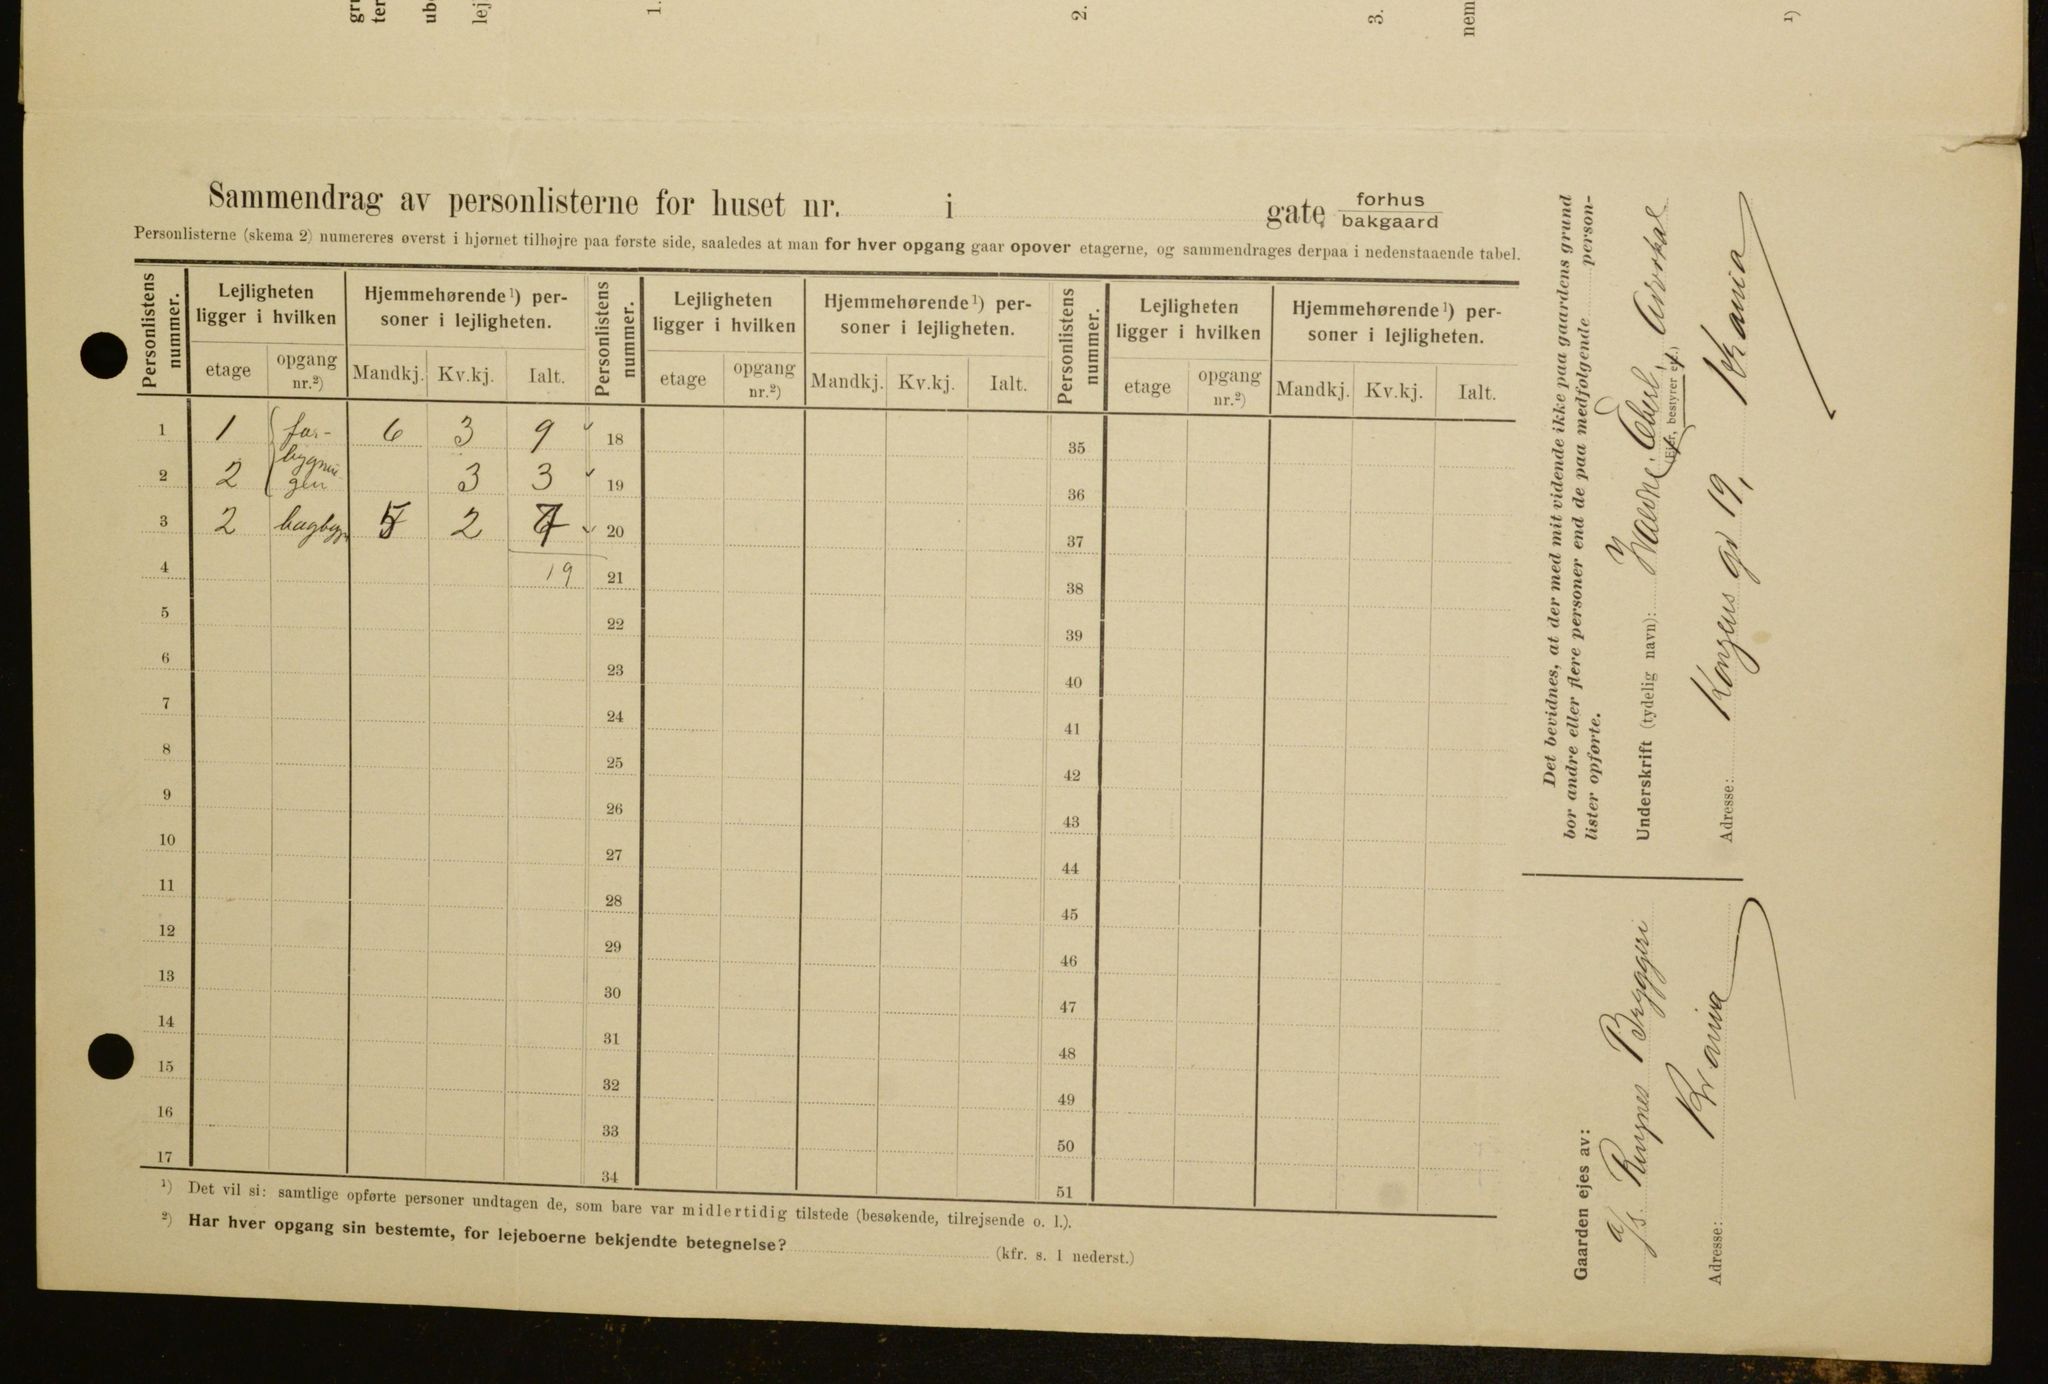 gru
ter
ub
lej
1.
2.
3.
nem
1)
Sammendrag av personlisterne for huset nr. i gate forhus
bakgaard
Personlisterne (skema 2) numereres øverst i hjørnet tilhøjre paa første side, saaledes at man for hver opgang gaar opover etagerne, og sammendrages derpaa i nedenstaaende tabel.
Personlistens nummer. Lejligheten ligger i hvilken Hjemmehørende 1) per-soner i lejligheten. Personlistens nummer. Lejligheten ligger i hvilken Hjemmehørende 1) per-soner i lejligheten. Personlistens nummer. Lejligheten ligger i hvilken Hjemmehørende 1) per-soner i lejligheten.
etage opgang nr.2) Mandkj. Kv.kj. Ialt. etage opgang nr.2) Mandkj. Kv.kj. Ialt. etage opgang nr.2) Mandkj. Kv.kj. Ialt.
1 1 for- 6 3 9 18 35
bygnin
2 2 gen 3 3 19 36
3 2 bagbygn 5 2 7 20 37
4 19 21 38
5 22 39
6 23 40
7 24 41
8 25 42
9 26 43
10 27 44
11 28 45
12 29 46
13 30 47
14 31 48
15 32 49
16 33 50
17 34 51
1) Det vil si: samtlige opførte personer undtagen de, som bare var midlertidig tilstede (besøkende, tilrejsende o. l.).
2) Har hver opgang sin bestemte, for lejeboerne bekjendte betegnelse? (kfr. s. 1 nederst.)
Det bevidnes, at der med mit vidende ikke paa gaardens grund
bor andre eller flere personer end de paa medfølgende person-
lister opførte.
Underskrift (tydelig navn): Advokat
(Ejer, bestyrer el.)
Adresse: Kongens gd 19, Kr.ania
Gaarden ejes av:
a/s. Ringnes Bryggeri
Adresse: Kr.ania